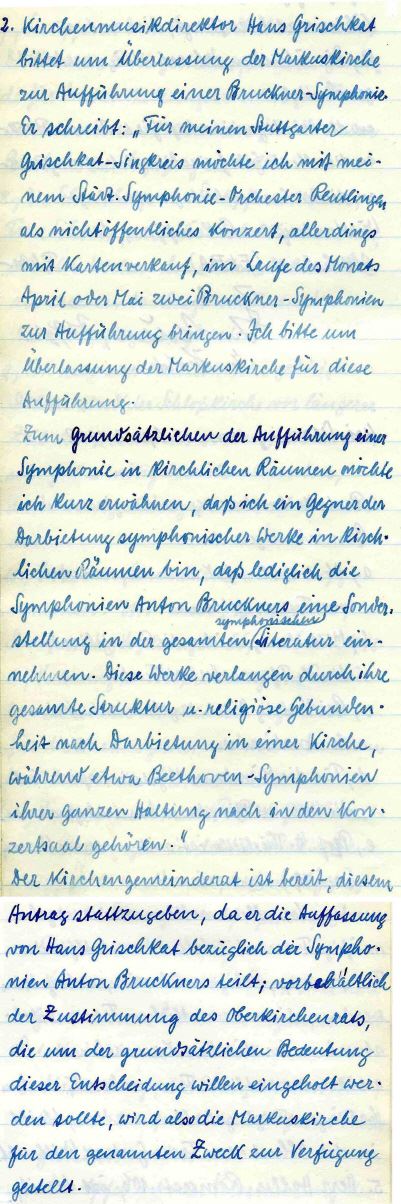 2. Kirchenmusikdirektor Hans Grischkat
bittet um Überlassung der Markuskirche
zur Aufführung einer Bruckner-Symphonie.
Er schreibt: „Für meinen Stuttgarter
Grischkat-Singkreis möchte ich mit mei-
nem Stärt. Symphonie-Orchester Reutlingen
als nichtöffentliches Konzert, allerdings
mit Kartenverkauf, im Laufe des Monats
April oder Mai zwei Bruckner-Symphonien
zur Aufführung bringen. Ich bitte um
Überlassung der Markuskirche für diese
Aufführung.
Zum Grundsätzlichen der Aufführung einer
Symphonie in kirchlichen Räumen möchte
ich kurz erwähnen, daß ich ein Gegner der
Darbietung symphonischer Werke in kirch-
lichen Räumen bin, daß lediglich die
Symphonien Anton Bruckners eine Sonder-
stellung in der gesamten symphonischen Literatur ein-
nehmen. Diese Werke verlangen durch ihre
gesamte Struktur u. religiöse Gebunden-
heit nach Darbietung in einer Kirche,
während etwa Beethoven-Symphonien
ihrer ganzen Haltung nach in den Kon-
zertsaal gehören."
Der Kirchengemeinderat ist bereit, diesem
Antrag stattzugeben, da er die Auffassung
von Hans Grischkat bezüglich der Sympho-
nien Anton Bruckners teilt; vorbehältlich
der Zustimmung des Oberkirchenrats,
die um der grundsätzlichen Bedeutung
dieser Entscheidung willen eingeholt wer-
den sollte, wird also die Markuskirche
für den genannten Zweck zur Verfügung
gestellt.